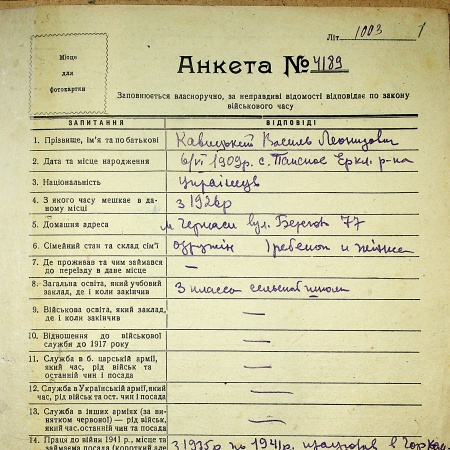 Літ 1003 1
Місце
для
фотокартки
Анкета № 4189
Заповнюється власноручно, за неправдиві відомості відповідає по закону
військового часу
ЗАПИТАННЯ ВІДПОВІДІ
1. Прізвище, ім'я та по батькові Василь Леонидович
2. Дата та місце народження 6/VI 1909 р. с. р-на
3. Національність українець
4. З якого часу мешкає в даному місці з 1926р
5. Домашня адреса м Черкаси вул. 77
6. Сімейний стан та склад сім'ї 1 ребенок и
7. Де проживав та чим займався
до переїзду в дане місце —
8. Загальна освіта, який учбовий
заклад, де і коли закінчив 3 класса сельской школи
9. Військова освіта, який заклад,
де і коли закінчив —
10. Відношення до військової
служби до 1917 року —
11. Служба в б. царській армії,
який час, рід військ та
останній чин і посада —
12. Служба в Українській армії, який
час, рід військ та ост. чин і посада —
13. Служба в інших арміях (за винятком
червоної) — рід військ,
який час, останній чин та посада —
14. Праця до війни 1941 р., місце та
займаєма посада (короткий з 1935р по 1941р. в